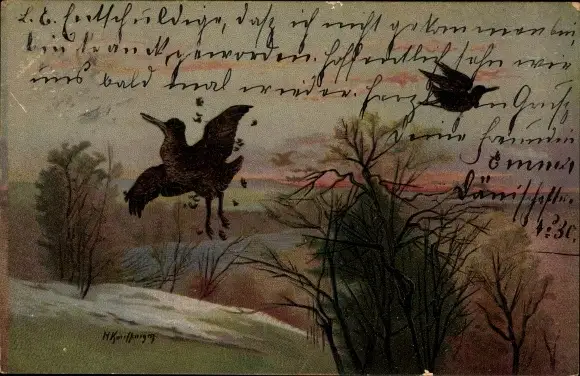 L. E. Entschuldige, daß ich nicht gekommen bin,
bin krank geworden. Hoffentlich sehn wir
uns bald mal wieder. Herzl. Gruß
Deine Freundin
Emmi
4. 30.